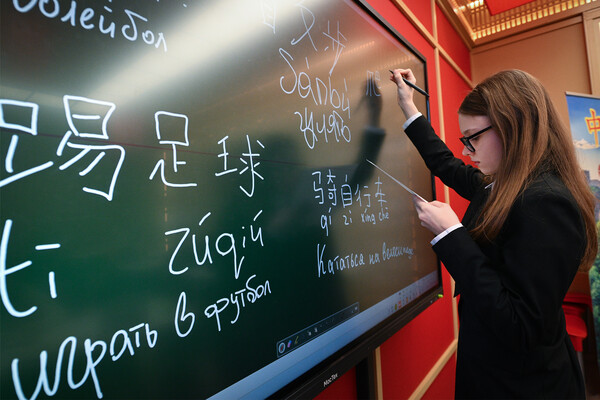 олейбол
踢足球
tī zúqiú
играть в футбол
Sànbù
гулять
骑自行车
qí zì xíng chē
Кататься на велосипеде
中